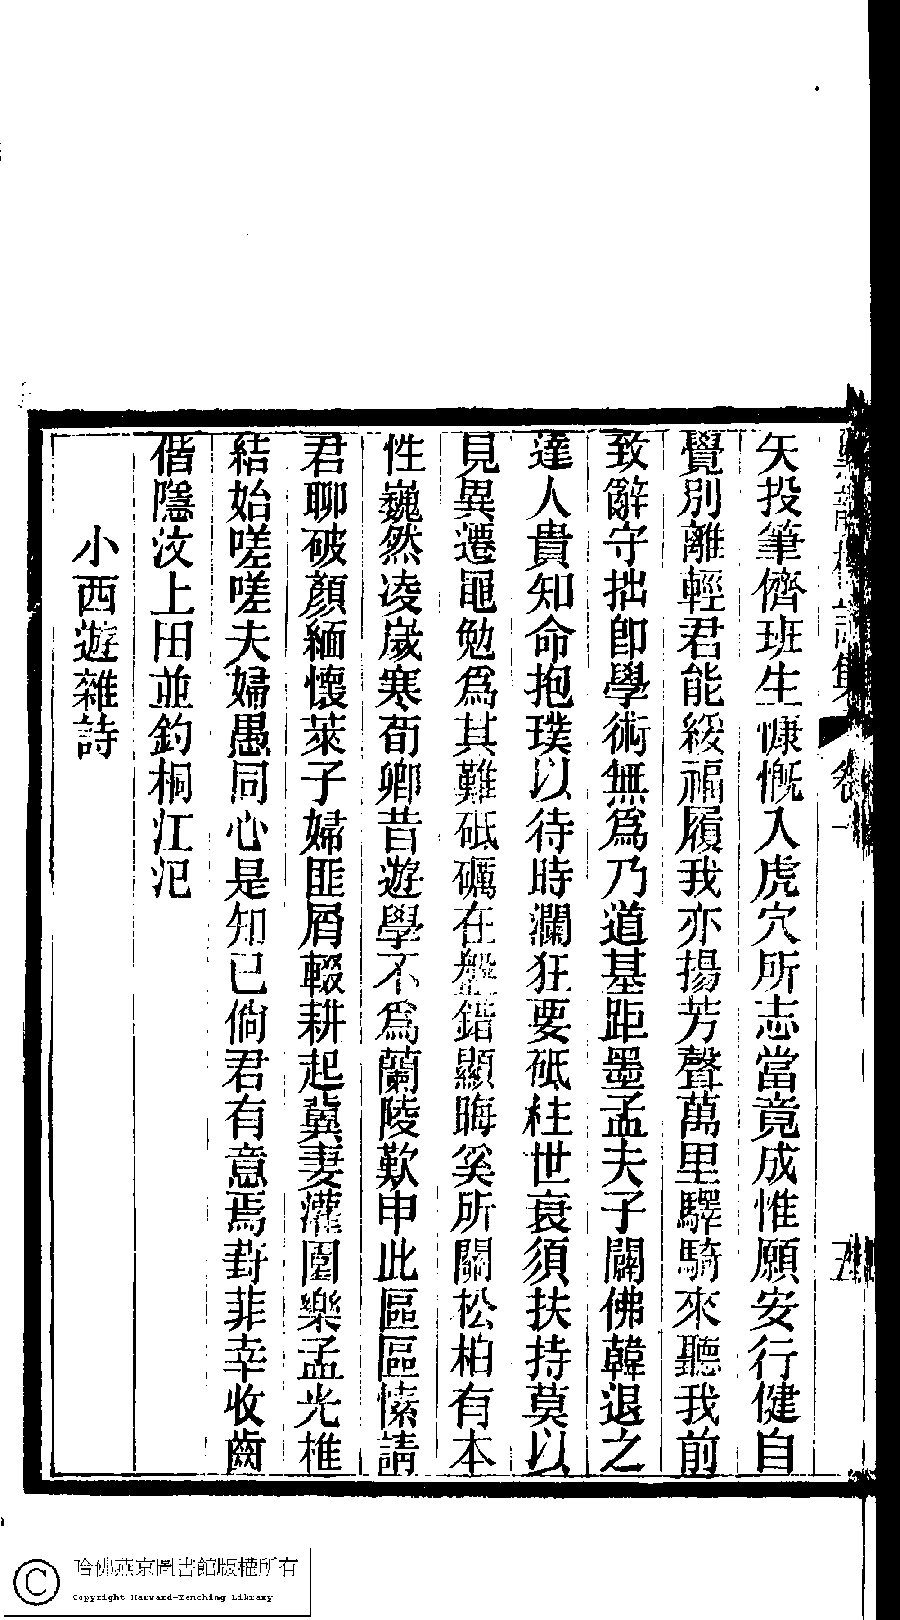 矢投筆儕班生慷慨入虎穴所志當竟成惟願安行健自
覺別離輕君能綏福履我亦揚芳聲萬里驛騎來聽我前
致辭守拙卽學術無爲乃道基距墨孟夫子闢佛韓退之
達人貴知命抱璞以待時瀾狂要砥柱世衰須扶持莫以
見異遷黽勉爲其難砥礪在盤錯顯晦奚所關松柏有本
性巍然凌歲寒荀卿昔遊學不爲蘭陵歎申此區區愫請
君聊破顏緬懷萊子婦匪屑輟耕起冀妻灌園樂孟光椎
結始嗟嗟夫婦愚同心是知已倘君有意焉葑菲幸收齒
偕隱汶上田並釣桐江汜
小西遊雜詩
哈佛燕京圖書館版權所有
Copyright Harvard-Yenching Library